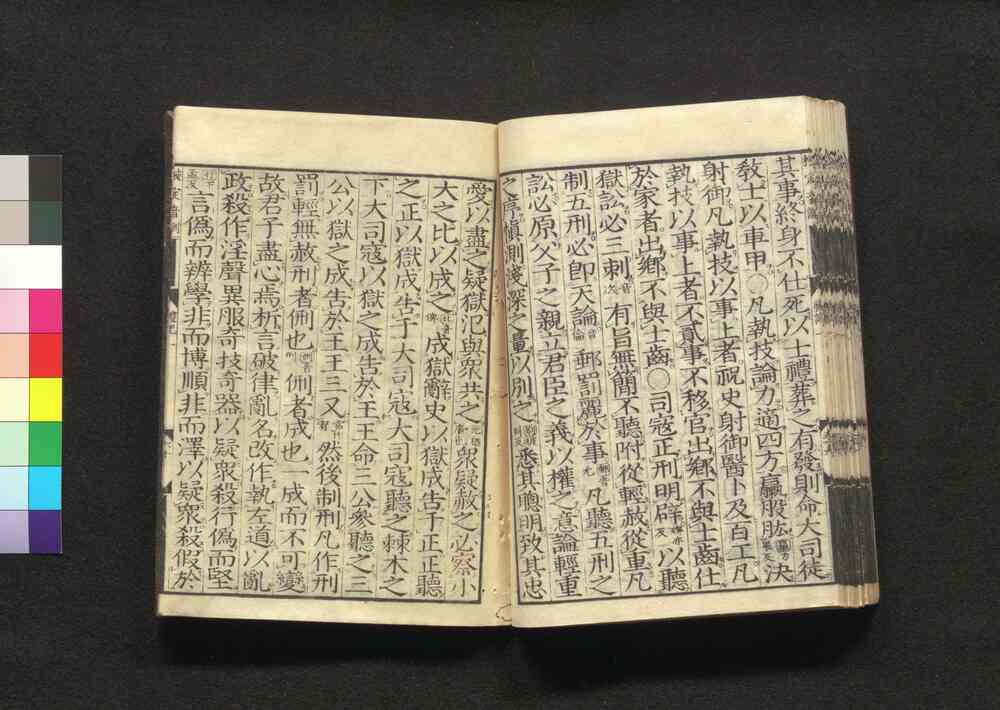 其事終身不仕死以士禮葬之有發則命大司徒
敎士以車甲〇凡執技論力適四方臝股肱決
射御凡執技以事上者祝史射御醫卜及百工凡
執技以事上者不貳事不移官出鄉不與士齒仕
於家者出鄉不與士齒〇司寇正刑明辟以聽
獄訟必三刺有旨無簡不聽附從輕赦從重凡
制五刑必即天論郵罰麗於事凡聽五刑之
訟必原父子之親立君臣之義以權之意論輕重
之序愼測淺深之量以別之悉其聰明致其忠
愛以盡之疑獄氾與衆共之衆疑赦之必察小
大之比以成之成獄辭史以獄成告于正正聽
之正以獄成告于大司寇大司寇聽之棘木之
下大司寇以獄之成告於王王命三公參聽之三
公以獄之成告於王王三又然後制刑凡作刑
罰輕無赦刑者侀也侀者成也一成而不可變
故君子盡心焉析言破律亂名改作執左道以亂
政殺作淫聲異服奇技奇器以疑衆殺行僞而堅
言僞而辨學非而博順非而澤以疑衆殺假於